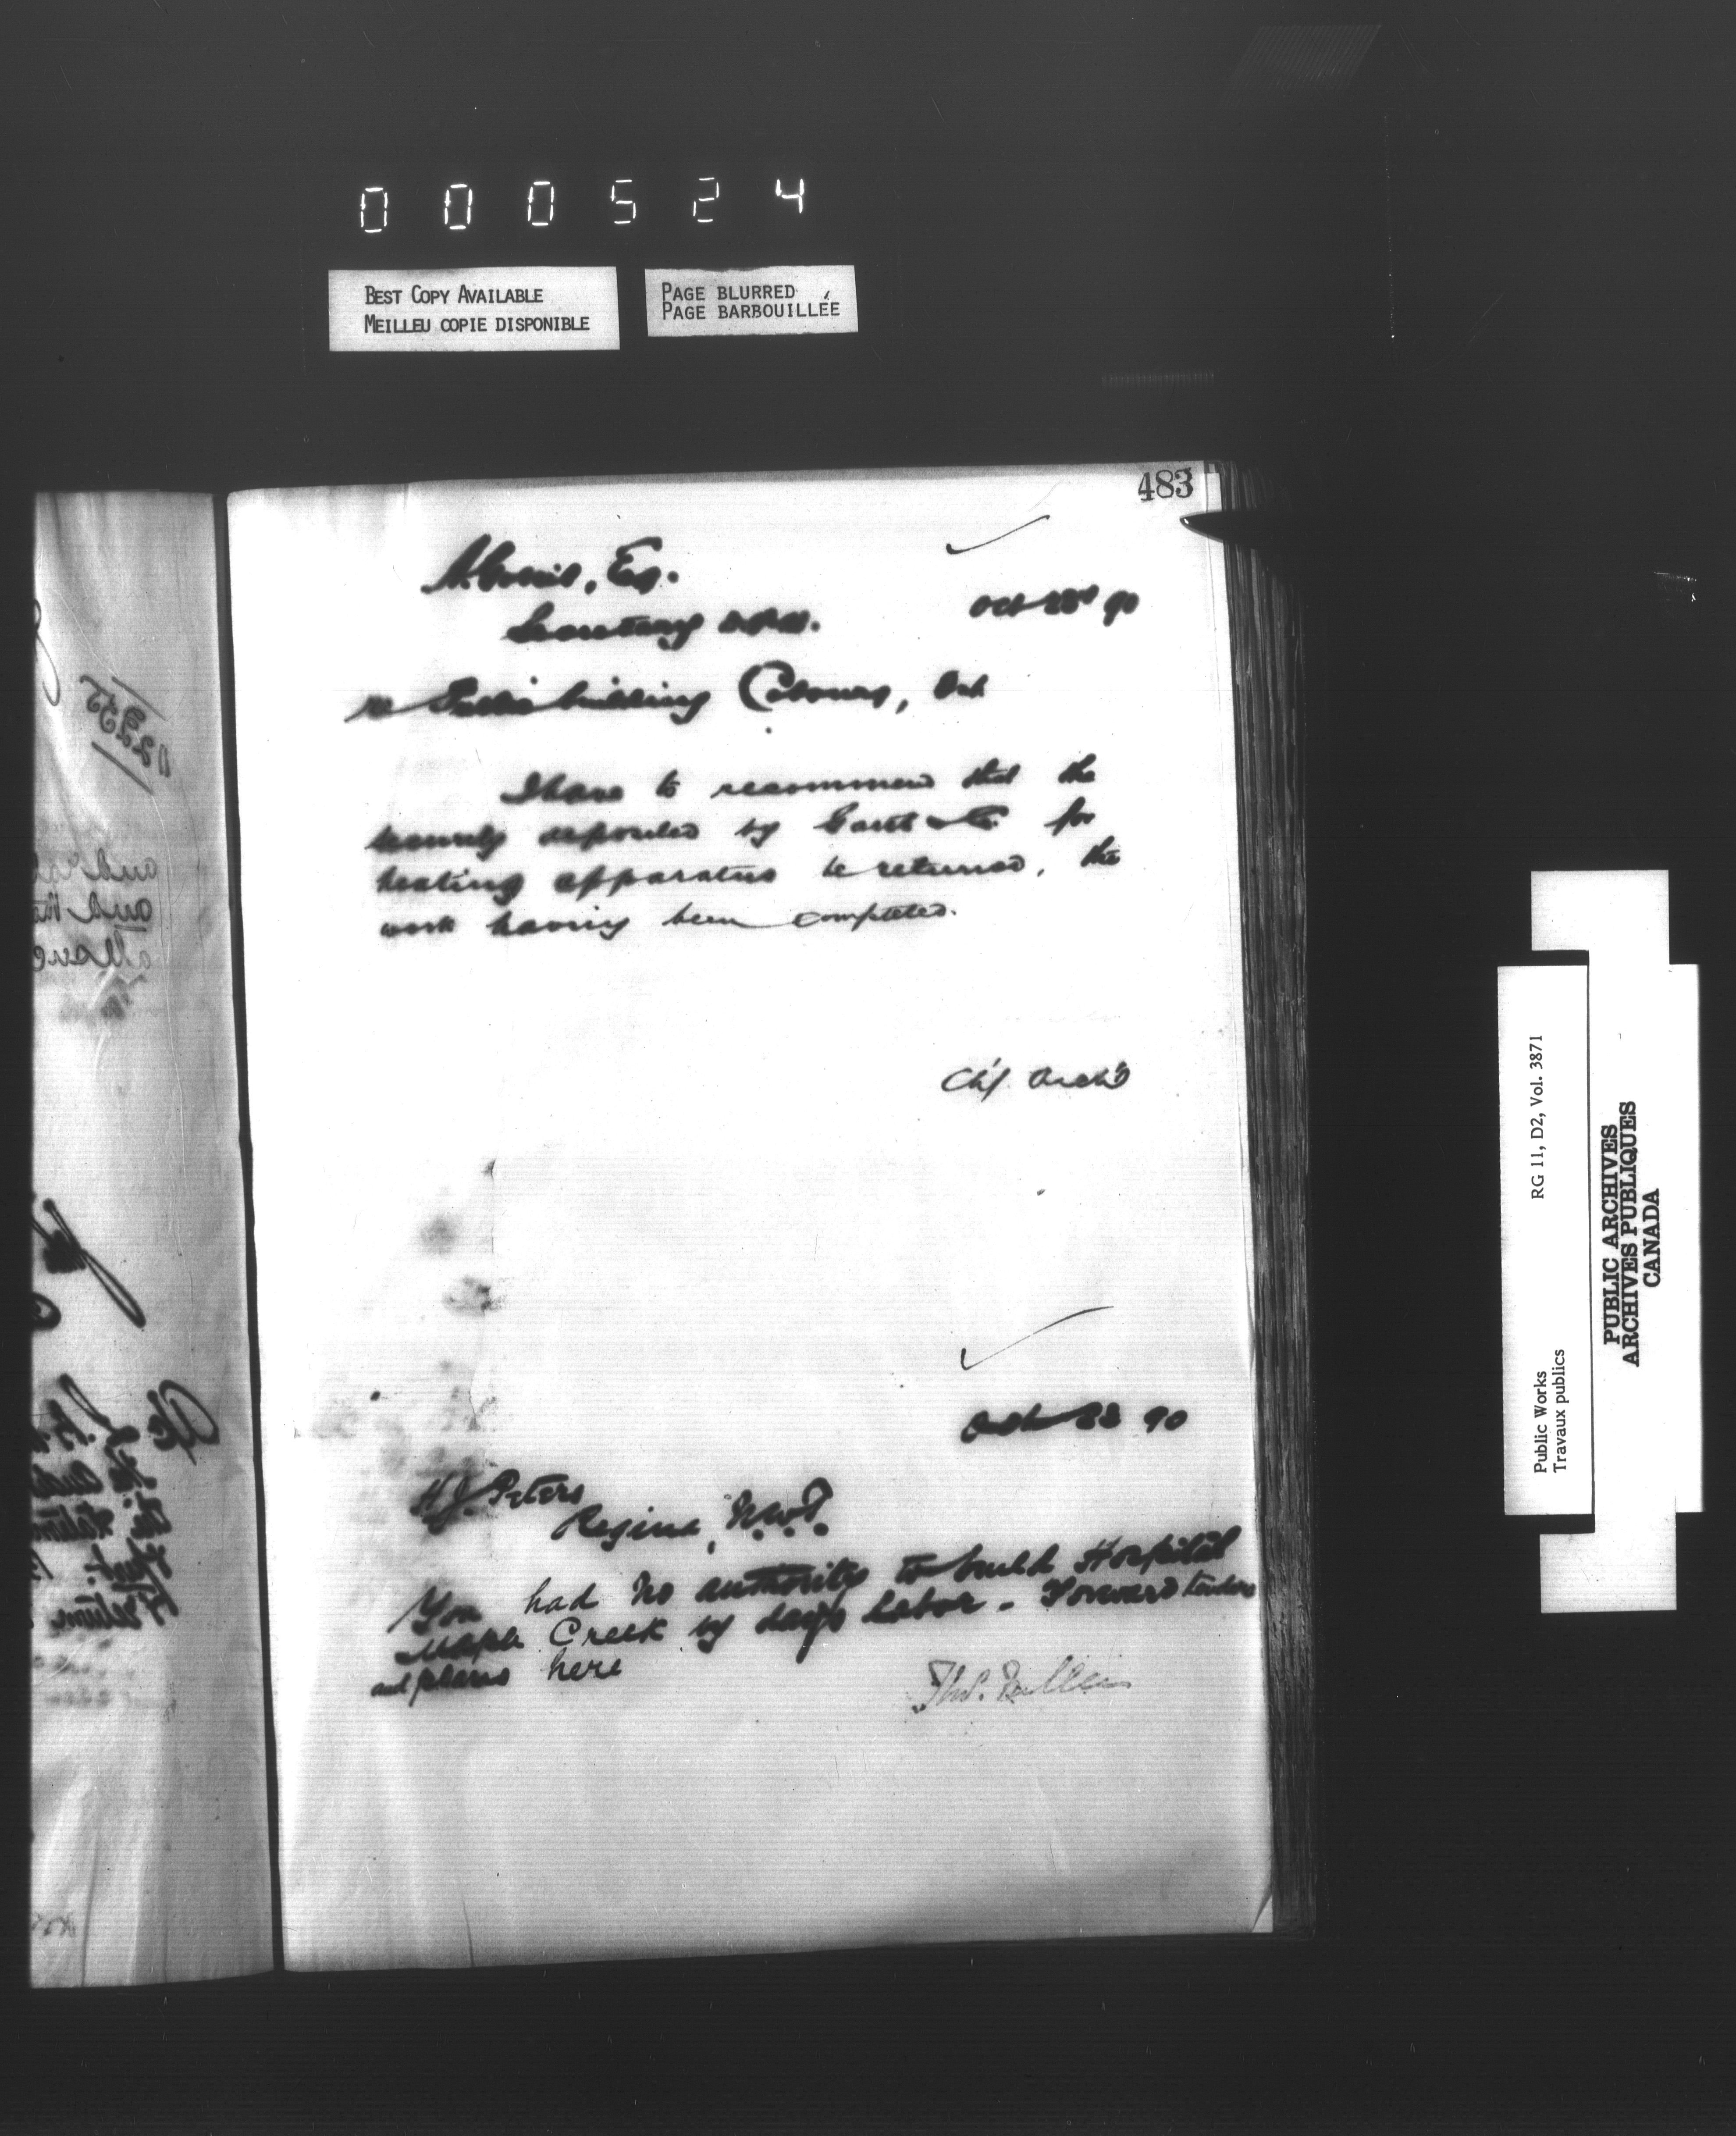 000524
BEST COPY AVAILABLE
MEILLEU COPIE DISPONIBLE
PAGE BLURRED
PAGE BARBOUILLÉE
483
Esq.
Oct 28th 90
Secretary D.P.W.
re Public building Cobourg, Ont
I have to recommend that the
security deposited by Garth & Co. for
heating apparatus be returned, the
work having been completed.
Ch'f. Arch't
Oct 28 90
H J. Peters
Regina, N.W.T.
You had no authority to build Hospital
Maple Creek by days labor - Forward tenders
and plans here
Thos. Fuller
Public Works
Travaux publics
RG 11, D2, Vol. 3871
PUBLIC ARCHIVES
ARCHIVES PUBLIQUES
CANADA